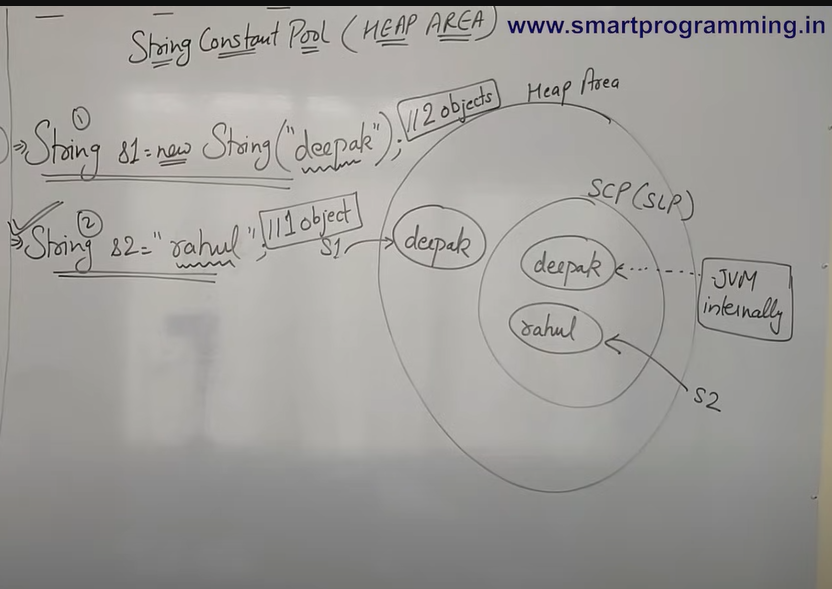 String Constant Pool (HEAP AREA)
www.smartprogramming.in
①
⇒ String s1 = new String("deepak"); //2 objects
②
⇒ String s2 = "rahul"; //1 object
Heap Area
SCP (SLP)
s1
deepak
deepak
rahul
JVM
internally
s2